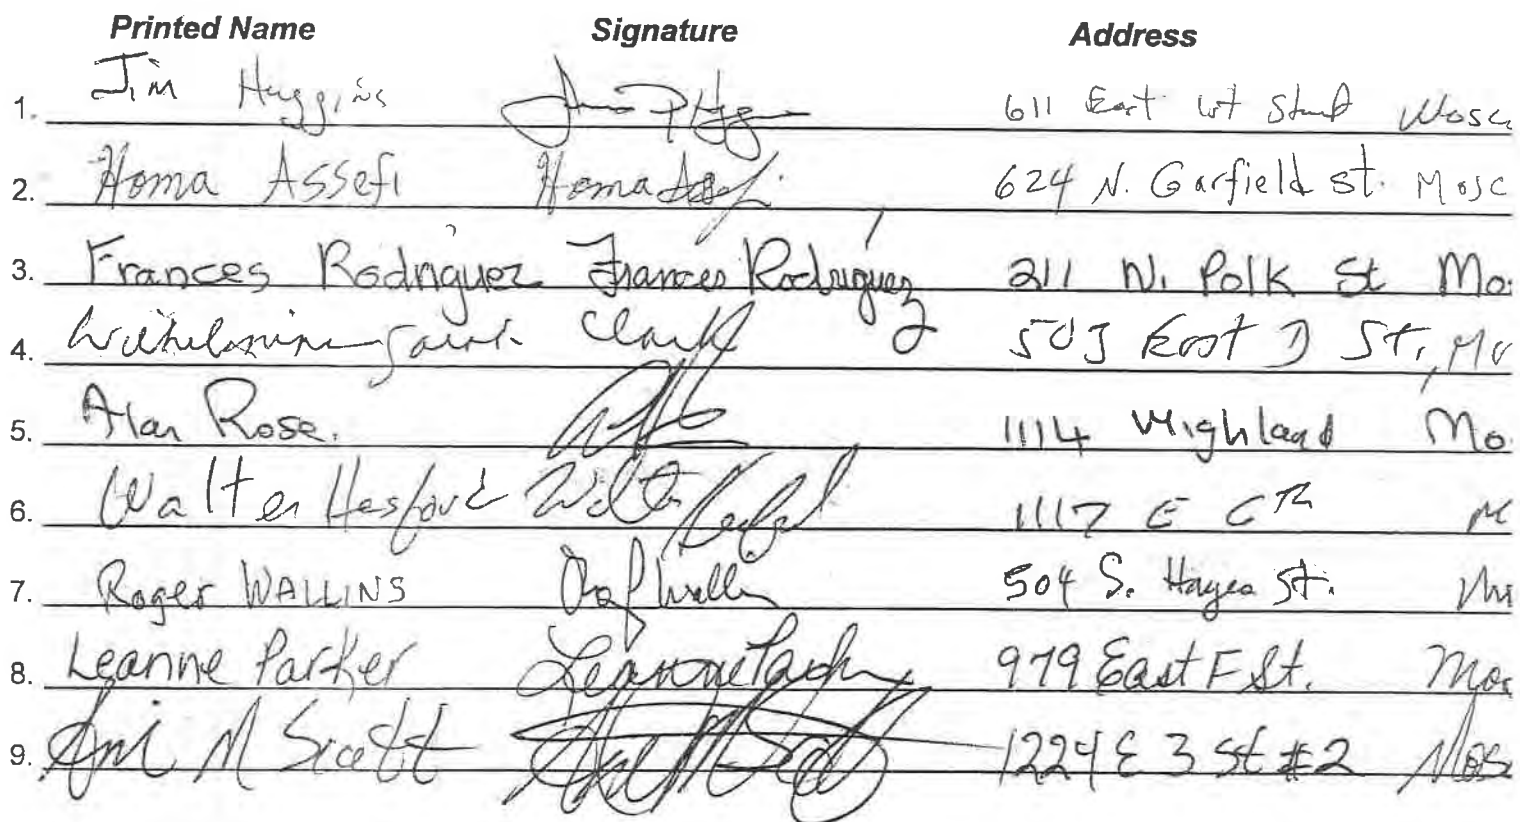 Printed Name Signature Address
1. Jim Huggins 611 East Mosc
2. Homa Assefi Homa Assefi 624 N. Garfield St. Mosc
3. Frances Rodriguez Frances Rodriguez 211 N. Polk St Mo
4. Wilhelmina Sarah Clark 503 East D St, Mo
5. Alan Rose. 1114 Highland Mo
6. Walter Hesford Walter Hesford 1117 E 6th M
7. Roger WALLINS Wallin 504 S. Hayes St.
8. Leanne Parker Leanne Park 979 East F St. Mos
9. M Scott M Scott 1224 E 3 St #2 Mos